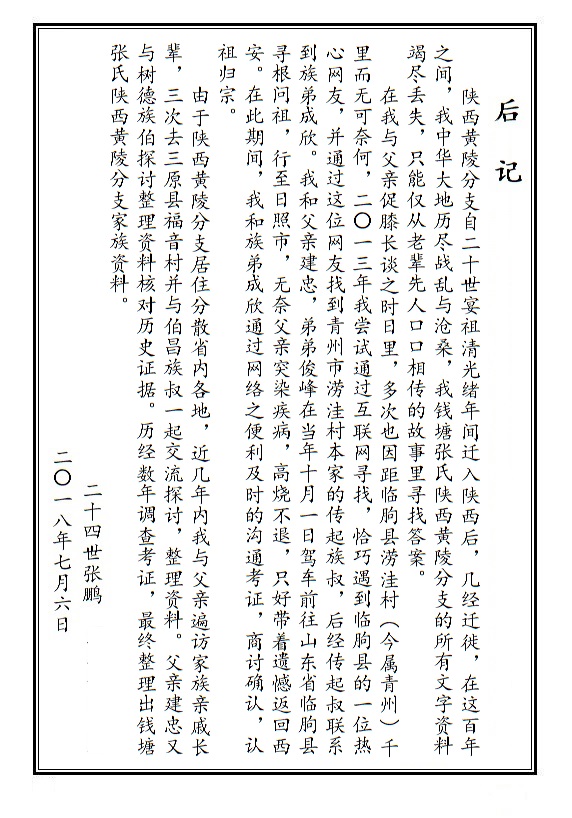 后记
陕西黄陵分支自二十世宴祖清光绪年间迁入陕西后，几经迁徙，在这百年
之间，我中华大地历尽战乱与沧桑，我钱塘张氏陕西黄陵分支的所有文字资料
竭尽丢失，只能仅从老辈先人口口相传的故事里寻找答案。
在我与父亲促膝长谈之时日里，多次也因距临朐县涝洼村（今属青州）千
里而无可奈何，二〇一三年我尝试通过互联网寻找，恰巧遇到临朐县的一位热
心网友，并通过这位网友找到青州市涝洼村本家的传起族叔，后经传起叔联系
到族弟成欣。我和父亲建忠，弟弟俊峰在当年十月一日驾车前往山东省临朐县
寻根问祖，行至日照市，无奈父亲突染疾病，高烧不退，只好带着遗憾返回西
安。在此期间，我和族弟成欣通过网络之便利及时的沟通考证，商讨确认，认
祖归宗。
由于陕西黄陵分支居住分散省内各地，近几年内我与父亲遍访家族亲戚长
辈，三次去三原县福音村并与伯昌族叔一起交流探讨，整理资料。父亲建忠又
与树德族伯探讨整理资料核对历史证据。历经数年调查考证，最终整理出钱塘
张氏陕西黄陵分支家族资料。
二十四世张鹏
二〇一八年七月六日